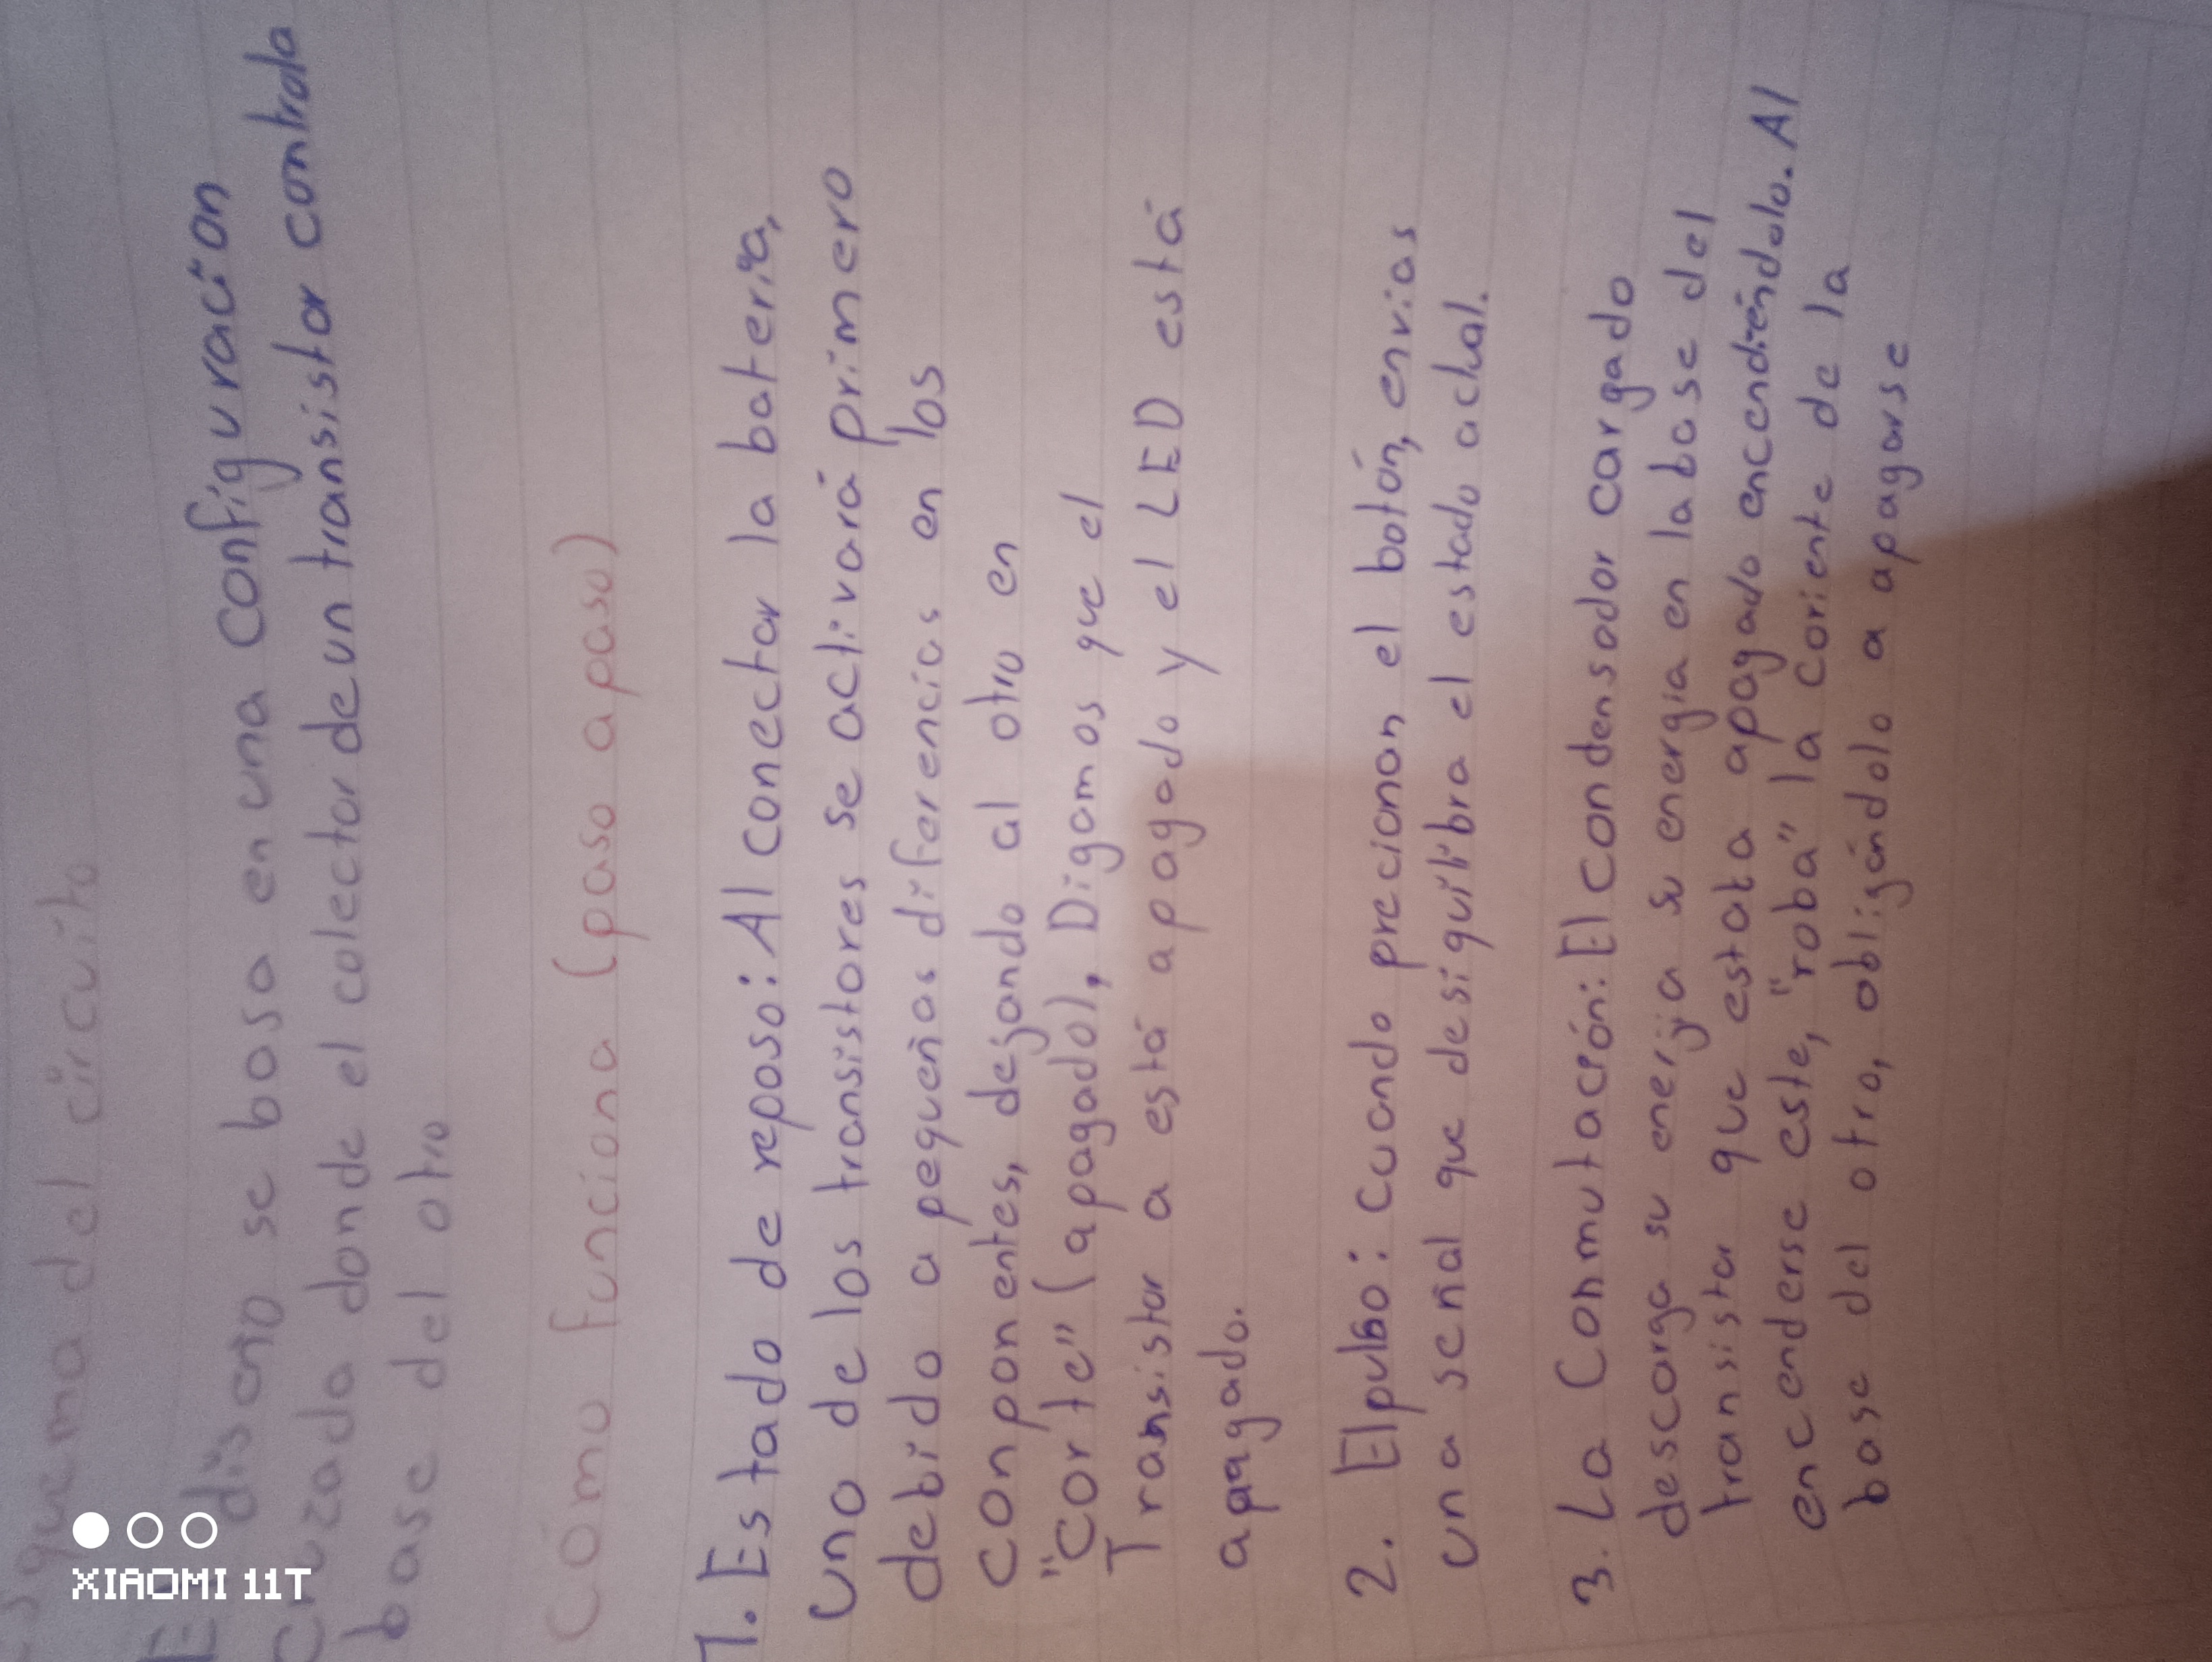 esquema del circuito
El diseño se basa en una configuración
cruzada donde el colector de un transistor controla
base del otro
Cómo funciona (paso a paso)
1. Estado de reposo: Al conectar la bateria,
uno de los transistores se activará primero
debido a pequeñas diferencias en los
conponentes, dejando al otro en
"corte" (apagado), Digamos que el
Transistor a está apagado y el LED está
apagado.
2. El pulso: cuando precionan el botón, envias
una señal que desiquilibra el estado actual.
3. La Conmutación: El condensador cargado
descarga su enerjia su energia en la base del
transistor que estata apagado encendiéndolo. Al
encenderse este, "roba" la coriente de la
base del otro, obligándolo a apagarse
XIAOMI 11T